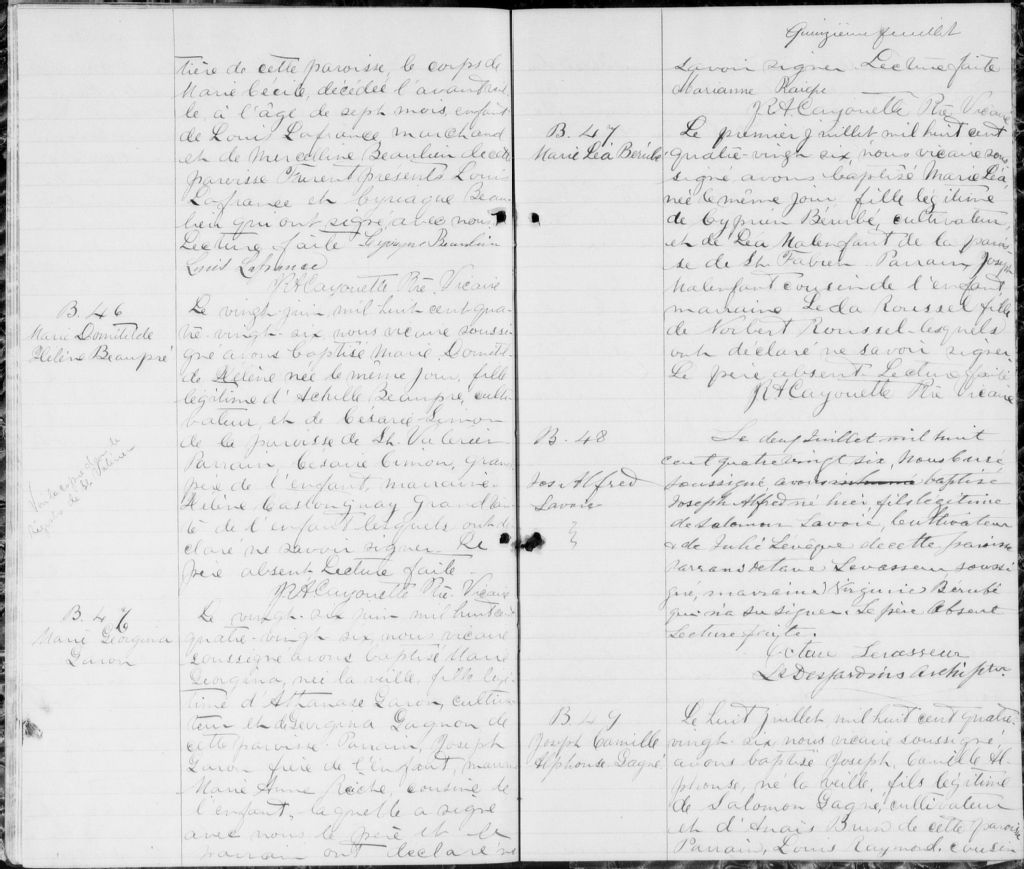 tière de cette paroisse, le corps de
Marie Cécile, décédée l'avant veil
le, à l'âge de sept mois, enfant
de Louis Lafrance marchand
et de Merceline Beaulieu de cette
paroisse Furent présents Louis
Lafrance et Cyriaque Beau
lieu qui ont signé avec nous
Lecture faite Beaulieu
Louis Lafrance
JRACayouette Ptre Vicaire
B. 46
Marie Domitilde
Hélène Beaupré
Le vingt juin mil huit cent qua
tre-vingt-six, nous vicaire soussi
gné avons baptisé Marie Domitil
de Hélène née le même jour, fille
légitime d'Achille Beaupré, culti
vateur, et de Césarie Simon
de la paroisse de St. Valérien
Parrain, Césaire Cimon, grand
père de l'enfant, marraine
Hélène Castonguay Grand'tan
te de l'enfant lesquels ont dé
claré ne savoir signer. Le
père absent Lecture faite
JRACayouette Ptre Vicaire
B. 47
Marie Georgina
Garon
Le vingt-six juin mil huit cent
quatre-vingt six, nous vicaire
soussigné avons baptisé Marie
Georgina, née la veille, fille légi
time d'Athanase Garon, cultiva
teur et de Georgina Gagnon de
cette paroisse. Parrain, Joseph
Garon frère de l'enfant, marraine
Marie Anne Riche, cousine de
l'enfant, laquelle a signé
avec nous le père et le
parrain ont déclaré ne
Quinzième feuillet
savoir signer Lecture faite
Marianne
JRACayouette Ptre Vicaire
B. 47
Marie Léa Bérubé
Le premier juillet mil huit cent
quatre-vingt six, nous vicaire sous
signé avons baptisé Marie Léa,
née le même jour fille légitime
de Cyprien Bérubé, cultivateur,
et de Léa Malenfant de la parois
se de St. Fabien Parrain Joseph
Malenfant cousin de l'enfant,
marraine Léda Roussel fille
de Norbert Roussel lesquels
ont déclaré ne savoir signer
Le père absent Lecture faite
JRACayouette Ptre Vicaire
B. 48
Jos Alfred
Savoie
Le deux Juillet mil huit
cent quatre vingt six, Nous Curé
soussigné, avons baptisé
Joseph Alfred né hier, fils légitime
de Salomon Savoie, Cultivateur
& de Julie Lévêque de cette paroisse
Parrain Octave Levasseur soussi
gné, marraine Virginie Bérubé
qui n'a su signer. Le père Absent
Lecture faite.
Octave Levasseur
Ls Desjardins Archiptre.
B. 49
Joseph Camille
Alphonse Gagné
Le huit Juillet mil huit cent quatre
vingt-six nous vicaire soussigné
avons baptisé Joseph, Camille Al
phonse, né la veille, fils légitime
de Salomon Gagné, cultivateur
et d'Anaïs Brun de cette paroisse
Parrain, Louis Raymond, cousin